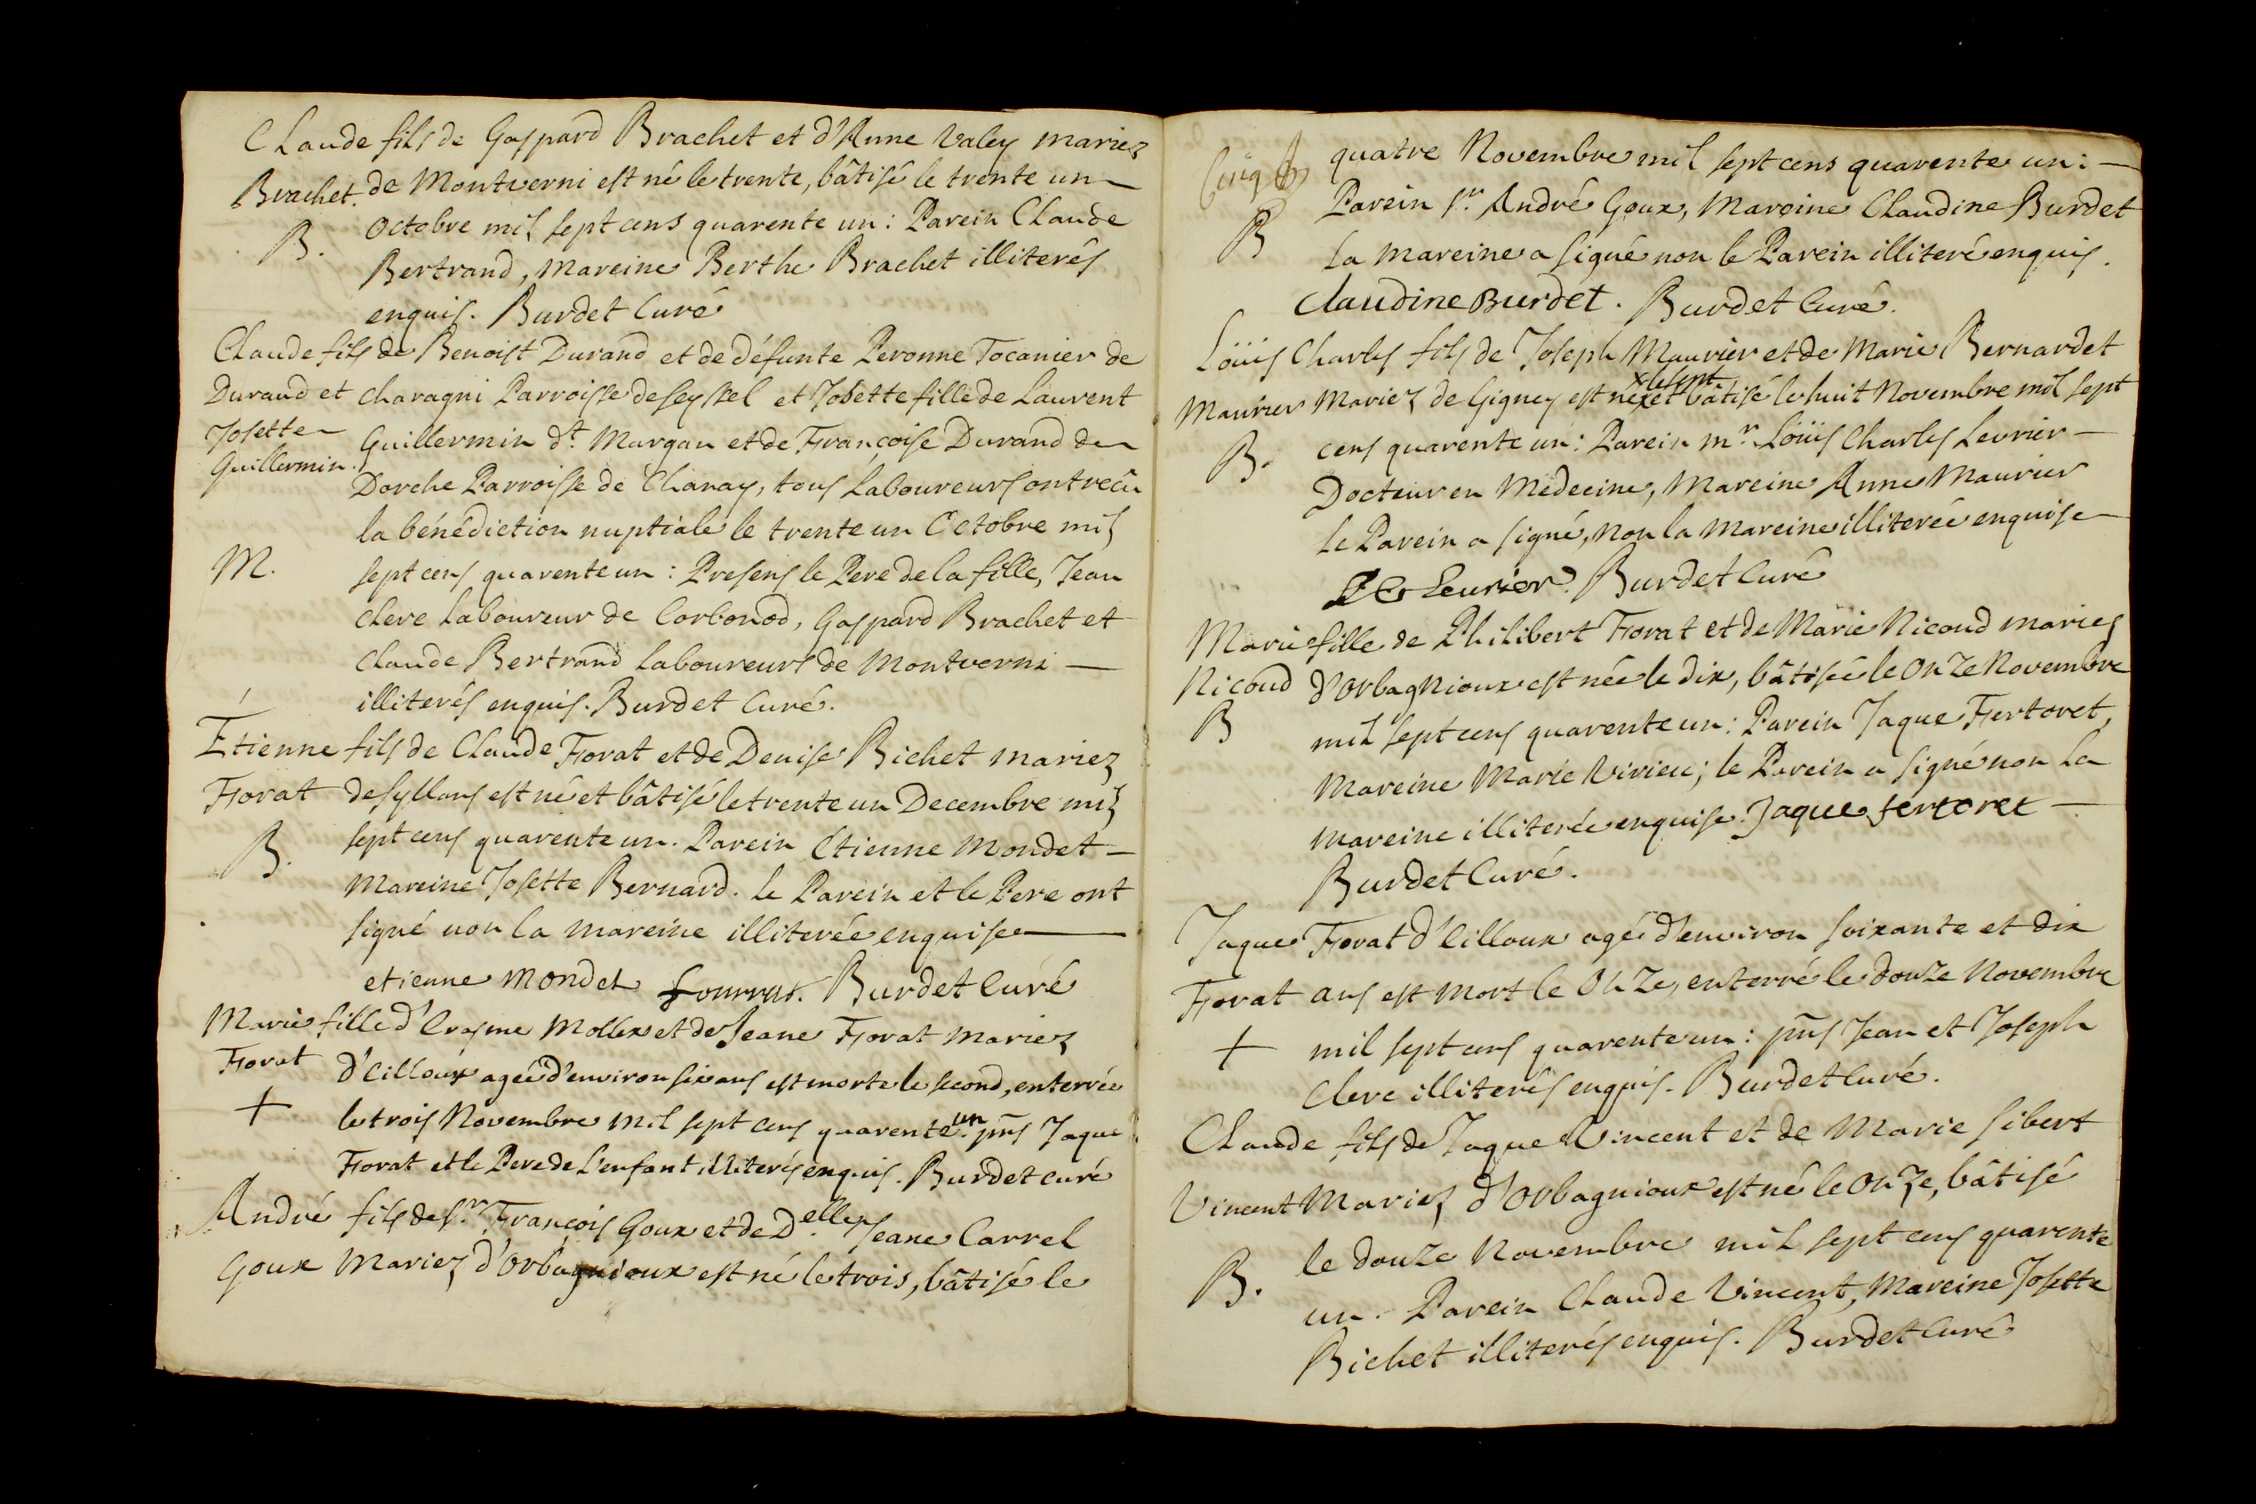 Claude fils de Gaspard Brachet et d'Anne Valey mariez
Brachet. de Montverni est né le trente, bâtisé le trente un
B. Octobre mil sept cens quarente un : Parein Claude
Bertrand, Mareine Berthe Brachet illiterés
enquis. Burdet Curé
Claude fils de Benoist Durand et de défunte Peronne Tocanier de
Durand et charagni Parroisse de seyssel et Josette fille de Laurent
Josette Guillermin dt. Murgau et de Françoise Durand de
Guillermin. Dorche Parroisse de Chanay, tous Laboureurs ont reçû
la bénédiction nuptiale le trente un Octobre mil
M. sept cens quarente un : Presens le Pere de la fille, Jean
clerc Laboureur de Corbonod, Gaspard Brachet et
claude Bertrand Laboureurs de Montverni
illiterés enquis. Burdet Curé.
Étienne fils de Claude Forat et de Denise Bichet mariez
Forat de syllans est né et bâtisé le trente un Decembre mil
B. sept cens quarente un. Parein Etienne Mondet
Mareine Josette Bernard. le Parein et le Pere ont
signé non la mareine illiterée enquise
etienne Mondet Fourrat. Burdet Curé
Marie fille d'Erasme Mollex et de Jeane Forat Mariez
Forat d'Eilloux agée d'environ six ans est morte le second, enterrée
+ le trois Novembre mil sept cens quarente un. pns Jaque
Forat et le Pere de l'enfant illiterés enquis. Burdet curé
André fils de sr. François Goux et de Delle Jeane Carrel
Goux Mariez d'Orbagnioux est né le trois, bâtisé le
quatre Novembre mil sept cens quarente un :
Parein sr. André Goux, Mareine Claudine Burdet
B La Mareine a signé non le Parein illiteré enquis.
Claudine Burdet. Burdet Curé.
Loüis Charles fils de Joseph Maurier et de Marie Bernardet
Maurier Mariez de Gigney est né x le sept et bâtisé le huit Novembre mil sept
B. cens quarente un : Parein mr. Loüis Charles Levrier
Docteur en Medecine, Mareine Anne Maurier
le Parein a signé, non la Mareine illiterée enquise
LC Leurier. Burdet Curé
Marie fille de Philibert Forat et de Marie Nicoud mariez
Nicoud d'Orbagnioux est née le dix, bâtisée le onze Novembre
B mil sept cens quarente un : Parein Jaque Fertoret,
Mareine Marie Vivieu ; le Parein a signé non la
Mareine illiterée enquise. Jaque fertoret
Burdet Curé.
Jaque Forat d'Eilloux agé d'environ soixante et dix
Forat ans est mort le onze, enterré le douze Novembre
+ mil sept cens quarente un : pns Jean et Joseph
Clerc illiterés enquis. Burdet Curé.
Claude fils de Jaque Vincent et de Marie Sibert
Vincent Mariez d'Orbagnioux est né le onze, bâtisé
B. le douze Novembre mil sept cens quarente
un. Parein Claude Vincent, Mareine Josette
Bichet illiterés enquis. Burdet Curé